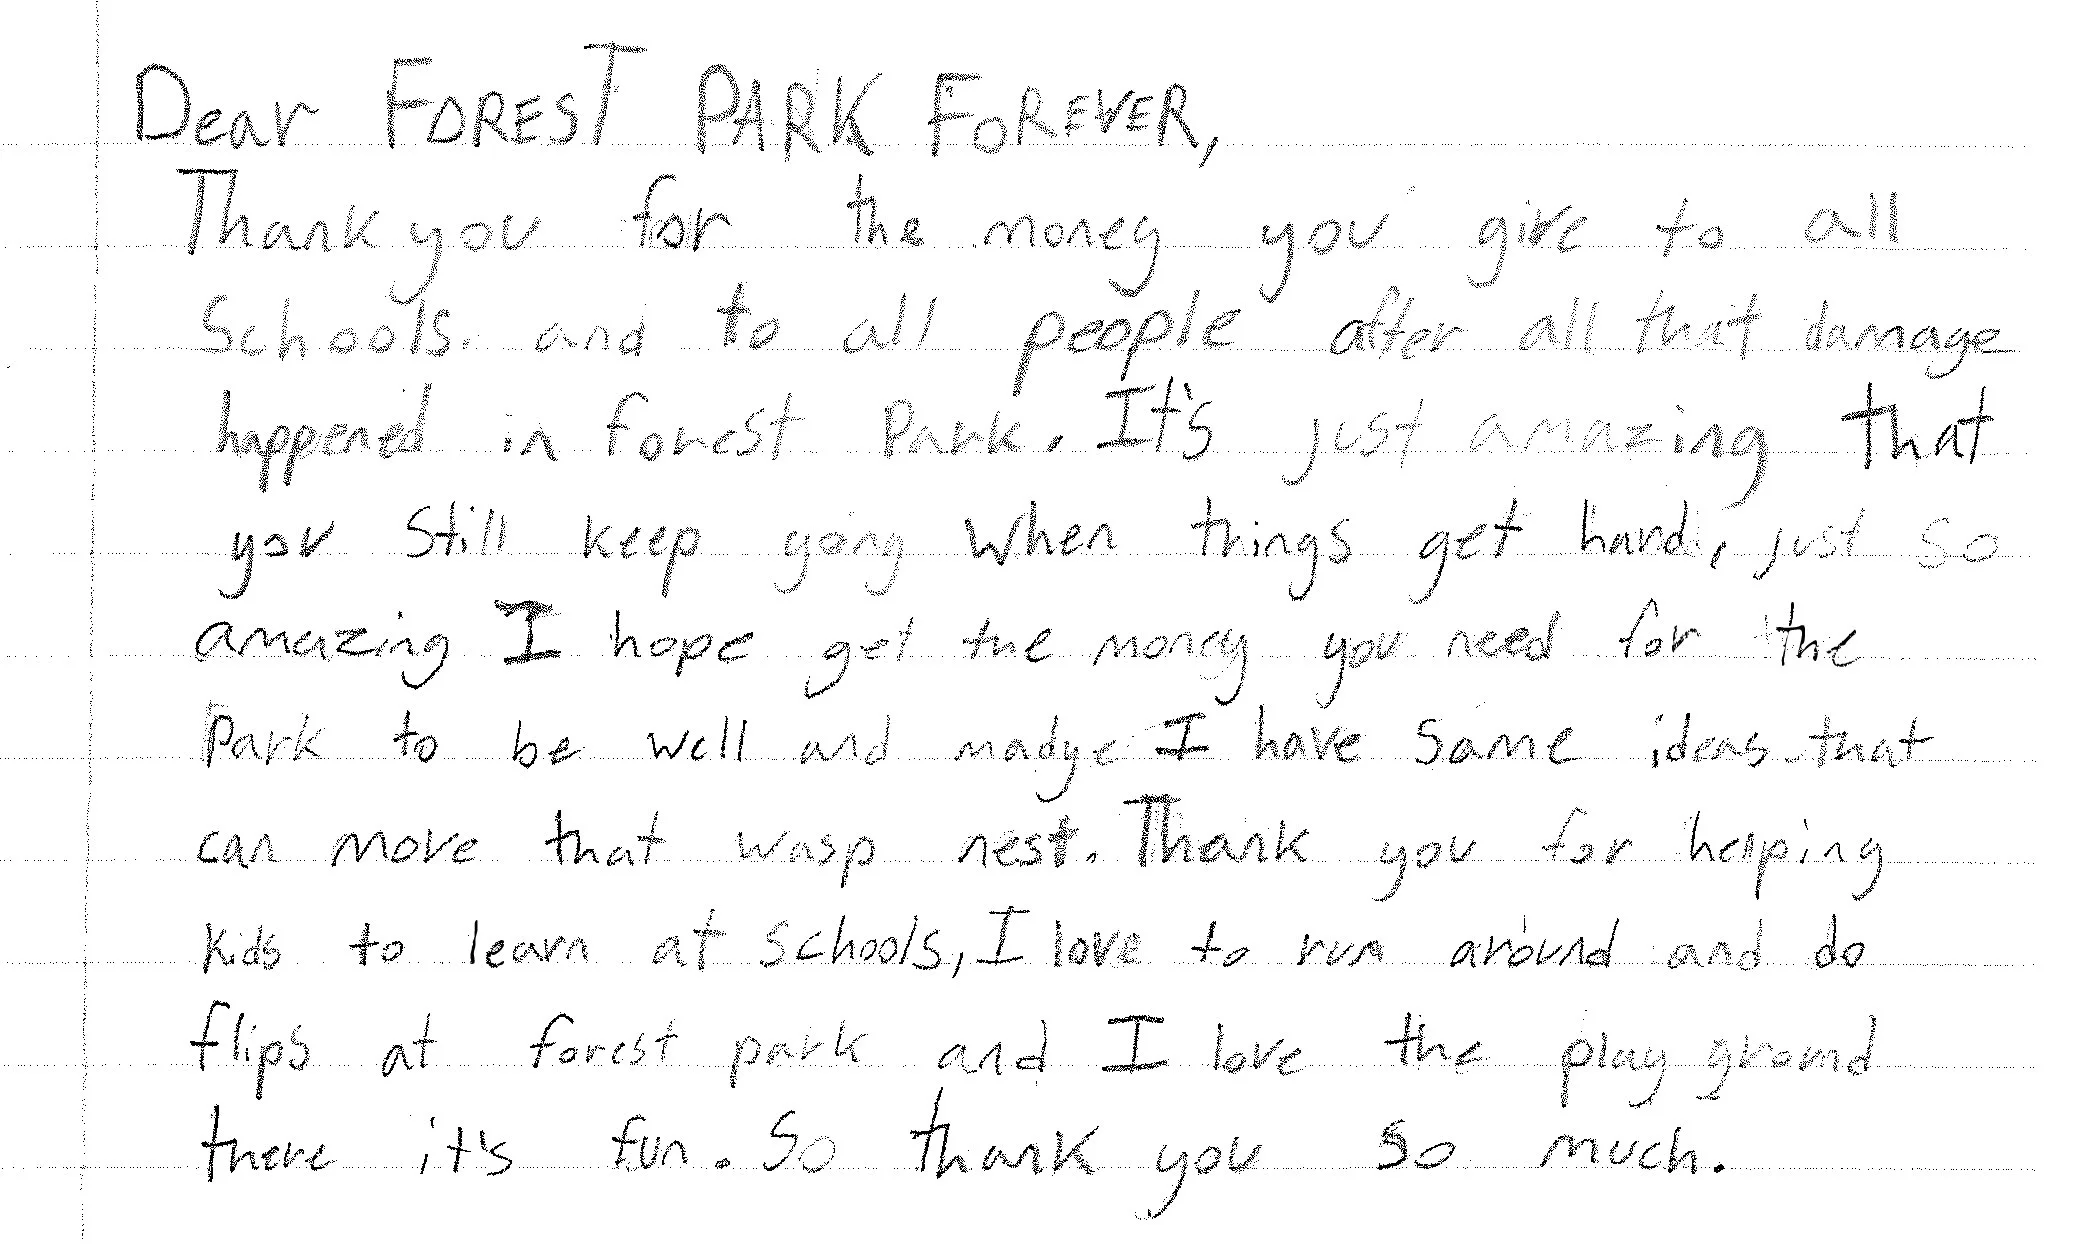 Dear FOREST PARK FOREVER,
Thank you for the money you give to all
Schools. and to all people after all that damage
happened in forest Park. It's just amazing that
you Still keep going when things get hard, just so
amazing I hope get the money you need for the
Park to be well and madye I have some ideas that
can move that wasp nest. Thank you for helping
kids to learn at schools, I love to run around and do
flips at forest park and I love the play ground
there it's fun. So thank you so much.